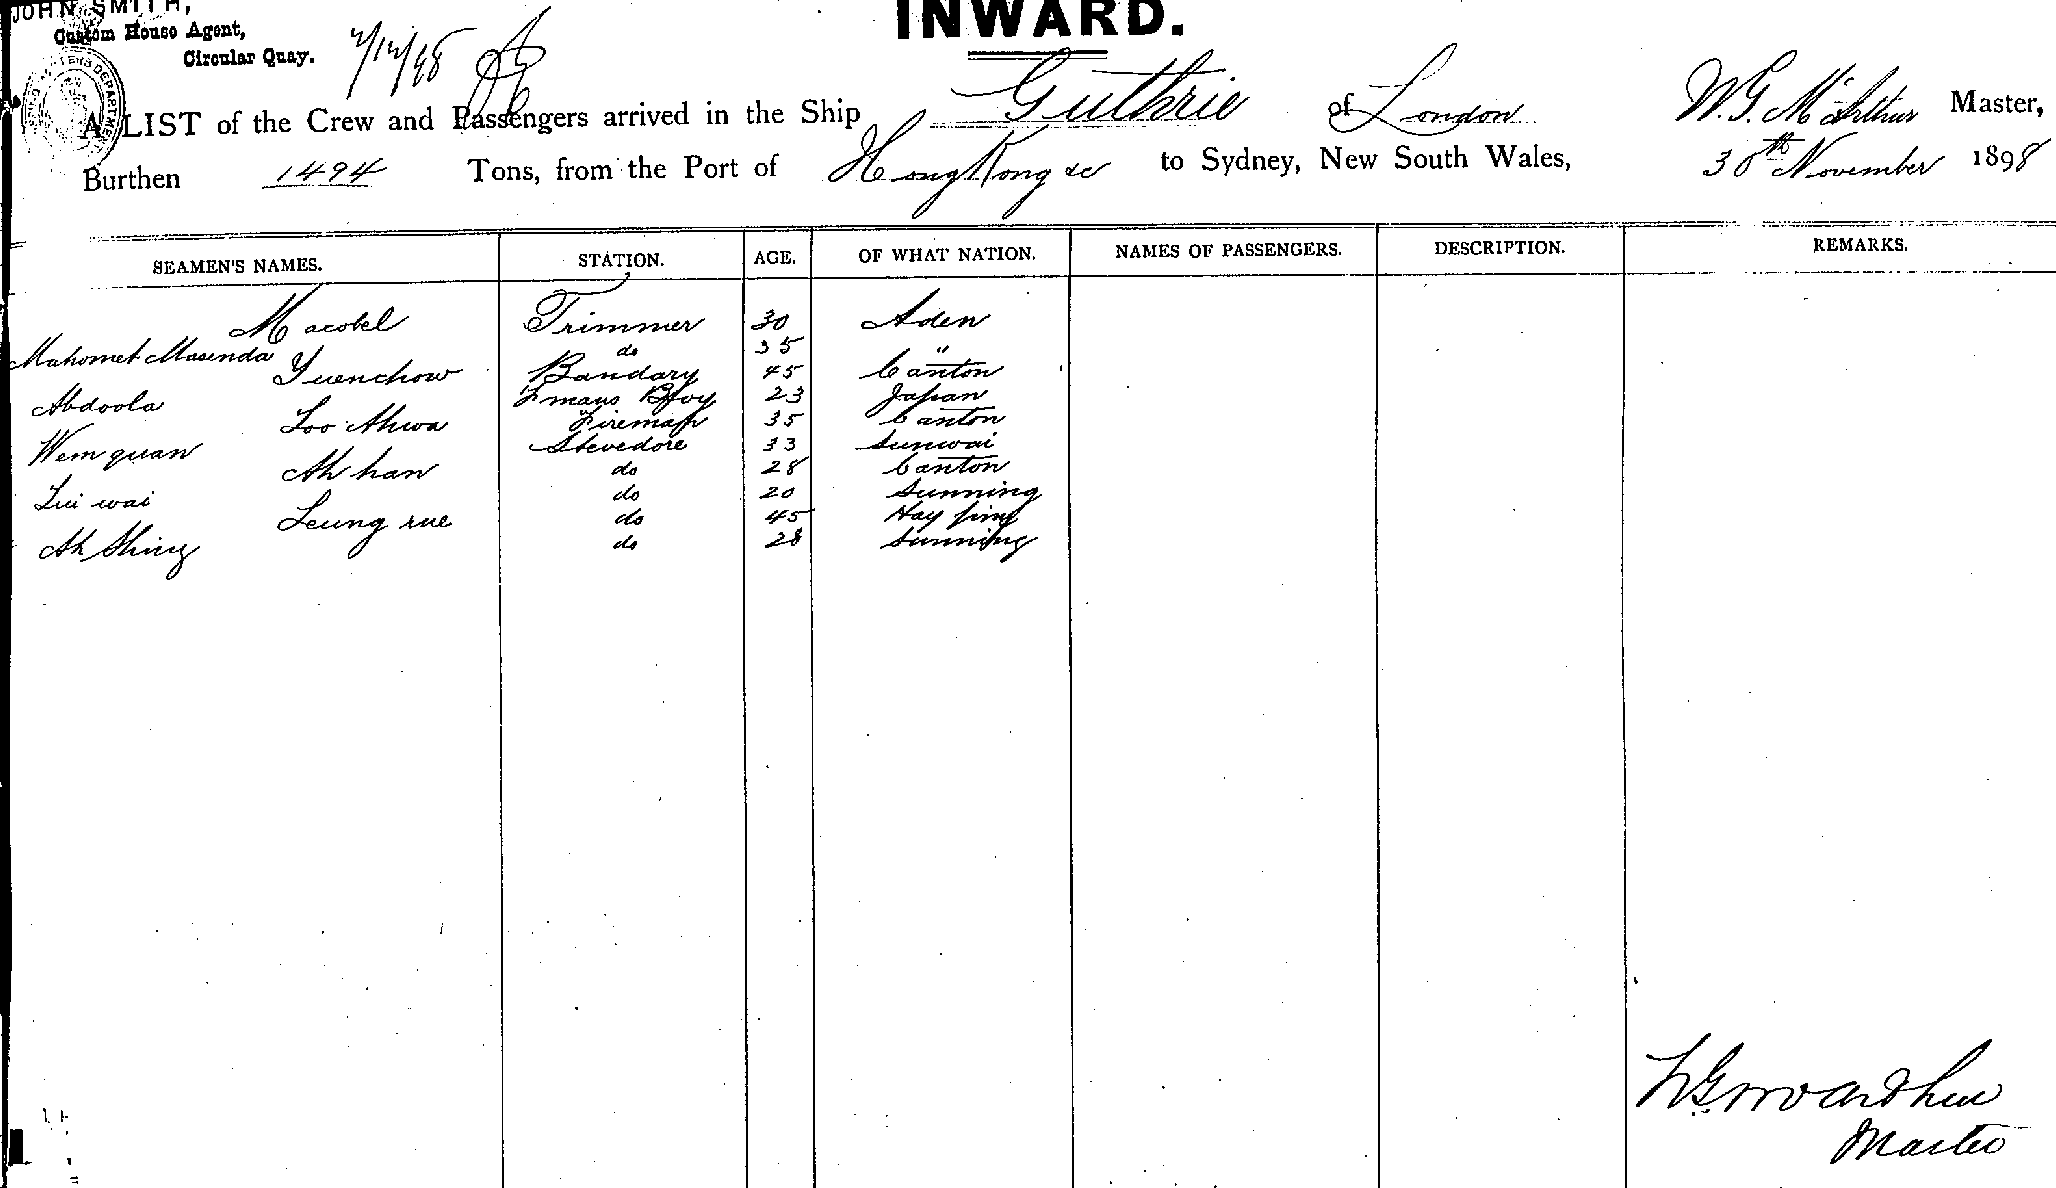 JOHN SMITH,
Custom House Agent,
Circular Quay.
INWARD.
A LIST of the Crew and Passengers arrived in the Ship Guthrie of London W. G. McArthur Master,
Burthen 1494 Tons, from the Port of Hong Kong &c to Sydney, New South Wales, 30th November 1898
SEAMEN'S NAMES. STATION. AGE. OF WHAT NATION. NAMES OF PASSENGERS. DESCRIPTION. REMARKS.
Macobel Trimmer 30 Aden
Mahomet Masenda do 35 "
Yuenchow Bandary 45 Canton
Abdoola Boy 23 Japan
Loo Ahwa Fireman 35 Canton
Wem quan Stevedore 33 Sunwai
Ah han do 28 Canton
Lui wai do 20 Sunning
Leung sue do 45 Hay ping
Ah Shing do 28 Sunning
Master